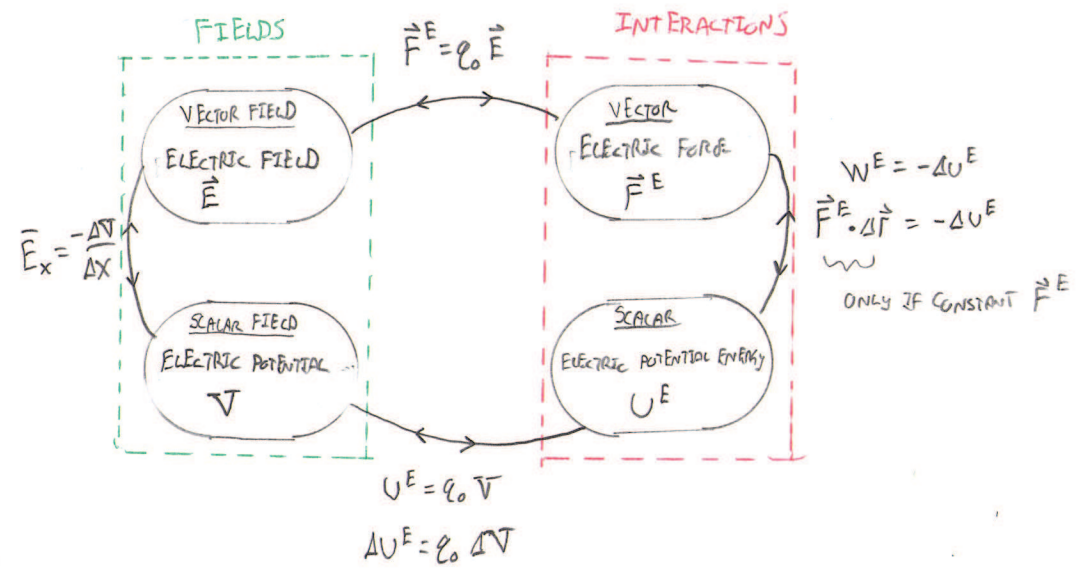 FIELDS
INTERACTIONS
F⃗ᴱ = q₀ E⃗
VECTOR FIELD
ELECTRIC FIELD
E⃗
VECTOR
ELECTRIC FORCE
F⃗ᴱ
Wᴱ = -ΔUᴱ
F⃗ᴱ · Δr⃗ = -ΔUᴱ
ONLY IF CONSTANT F⃗ᴱ
E̅ₓ = -ΔV/Δx
SCALAR FIELD
ELECTRIC POTENTIAL
V
SCALAR
ELECTRIC POTENTIAL ENERGY
Uᴱ
Uᴱ = q₀ V
ΔUᴱ = q₀ ΔV